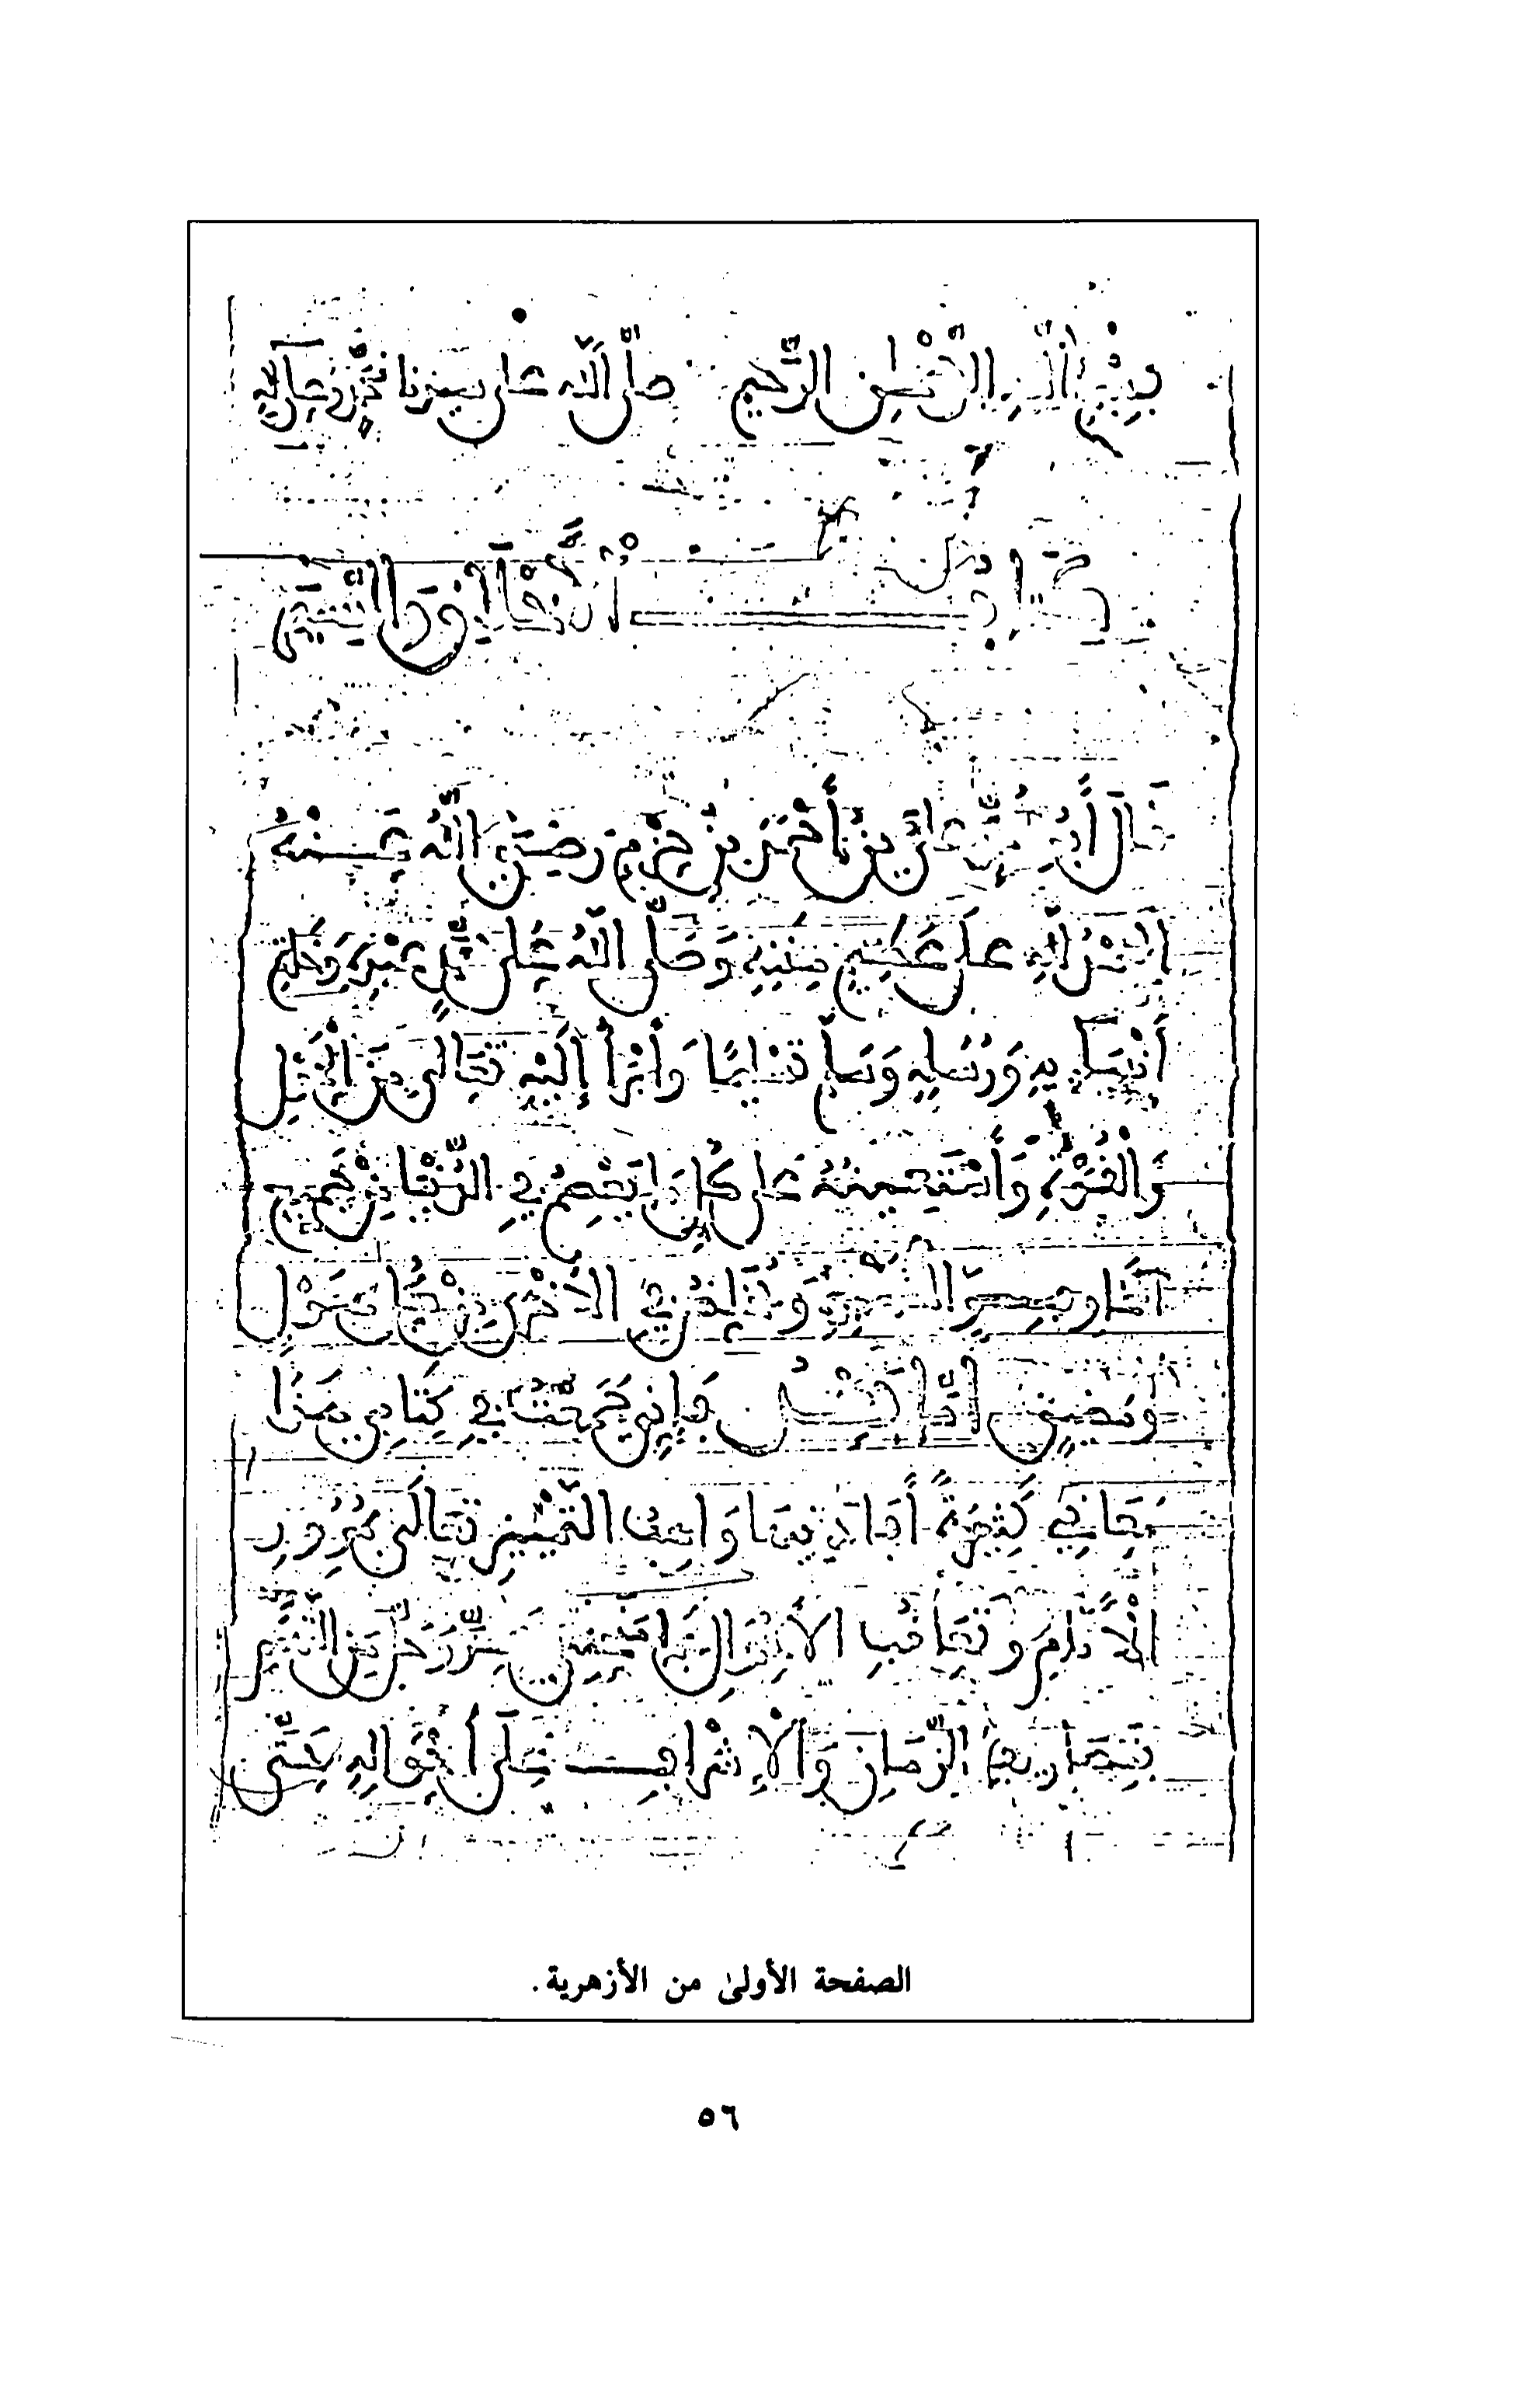 بِسْمِ اللَّهِ الرَّحْمٰنِ الرَّحِيمِ صَلَّى اللَّهُ على سيدنا محمد وعلى آله
الأخلاق والسير
قَالَ أَبُو علي بن أَحْمَدَ بْنِ حَزْمٍ رَضِيَ اللَّهُ عَنْهُ
الحمدُ لله على عَظِيمِ مِنَنِهِ وَصَلَّى اللَّهُ عَلَى مُحَمَّدٍ عَبْدِهِ وَخَاتَمِ
أَنْبِيَائِهِ وَرُسُلِهِ وَسَلَّمَ تسليمًا وَأَبْرَأُ إِلَيْهِ تَعَالَى مِنَ الْحَوْلِ
وَالْقُوَّةِ وَأَسْتَعِينُهُ عَلَى كُلِّ مَا يَعْصِمُ فِي الدُّنْيَا مِنْ جَمِيعِ
الْمَخَاوِفِ وَالْمَكَارِهِ وَيُخَلِّصُ فِي الْأُخْرَى مِنْ كُلِّ هَوْلٍ
وَمَضِيقٍ أَمَّا بَعْدُ فَإِنِّي جَمَعْتُ فِي كِتَابِي هَذَا
مَعَانِيَ كَثِيرَةً أَفَادَنِيهَا وَاهِبُ التَّمْيِيزِ تَعَالَى بِمُرُورِ
الْأَيَّامِ وَتَعَاقُبِ الْأَحْوَالِ بِمَا مَنَحَنِي عَزَّ وَجَلَّ مِنَ التَّهَمُّمِ
بِتَصَارِيفِ الزَّمَانِ وَالْإِشْرَافِ عَلَى أَحْوَالِهِ حَتَّى
الصفحة الأولىٰ من الأزهرية.
٥٦